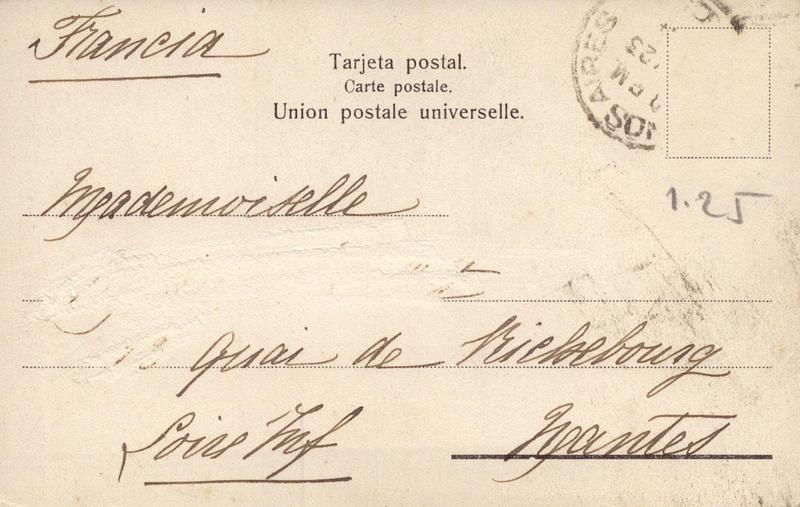 Francia
Tarjeta postal.
Carte postale.
Union postale universelle.
OS AIRES
PM
23
1.25
Mademoiselle
Quai de Richebourg
Loire Inf
Nantes